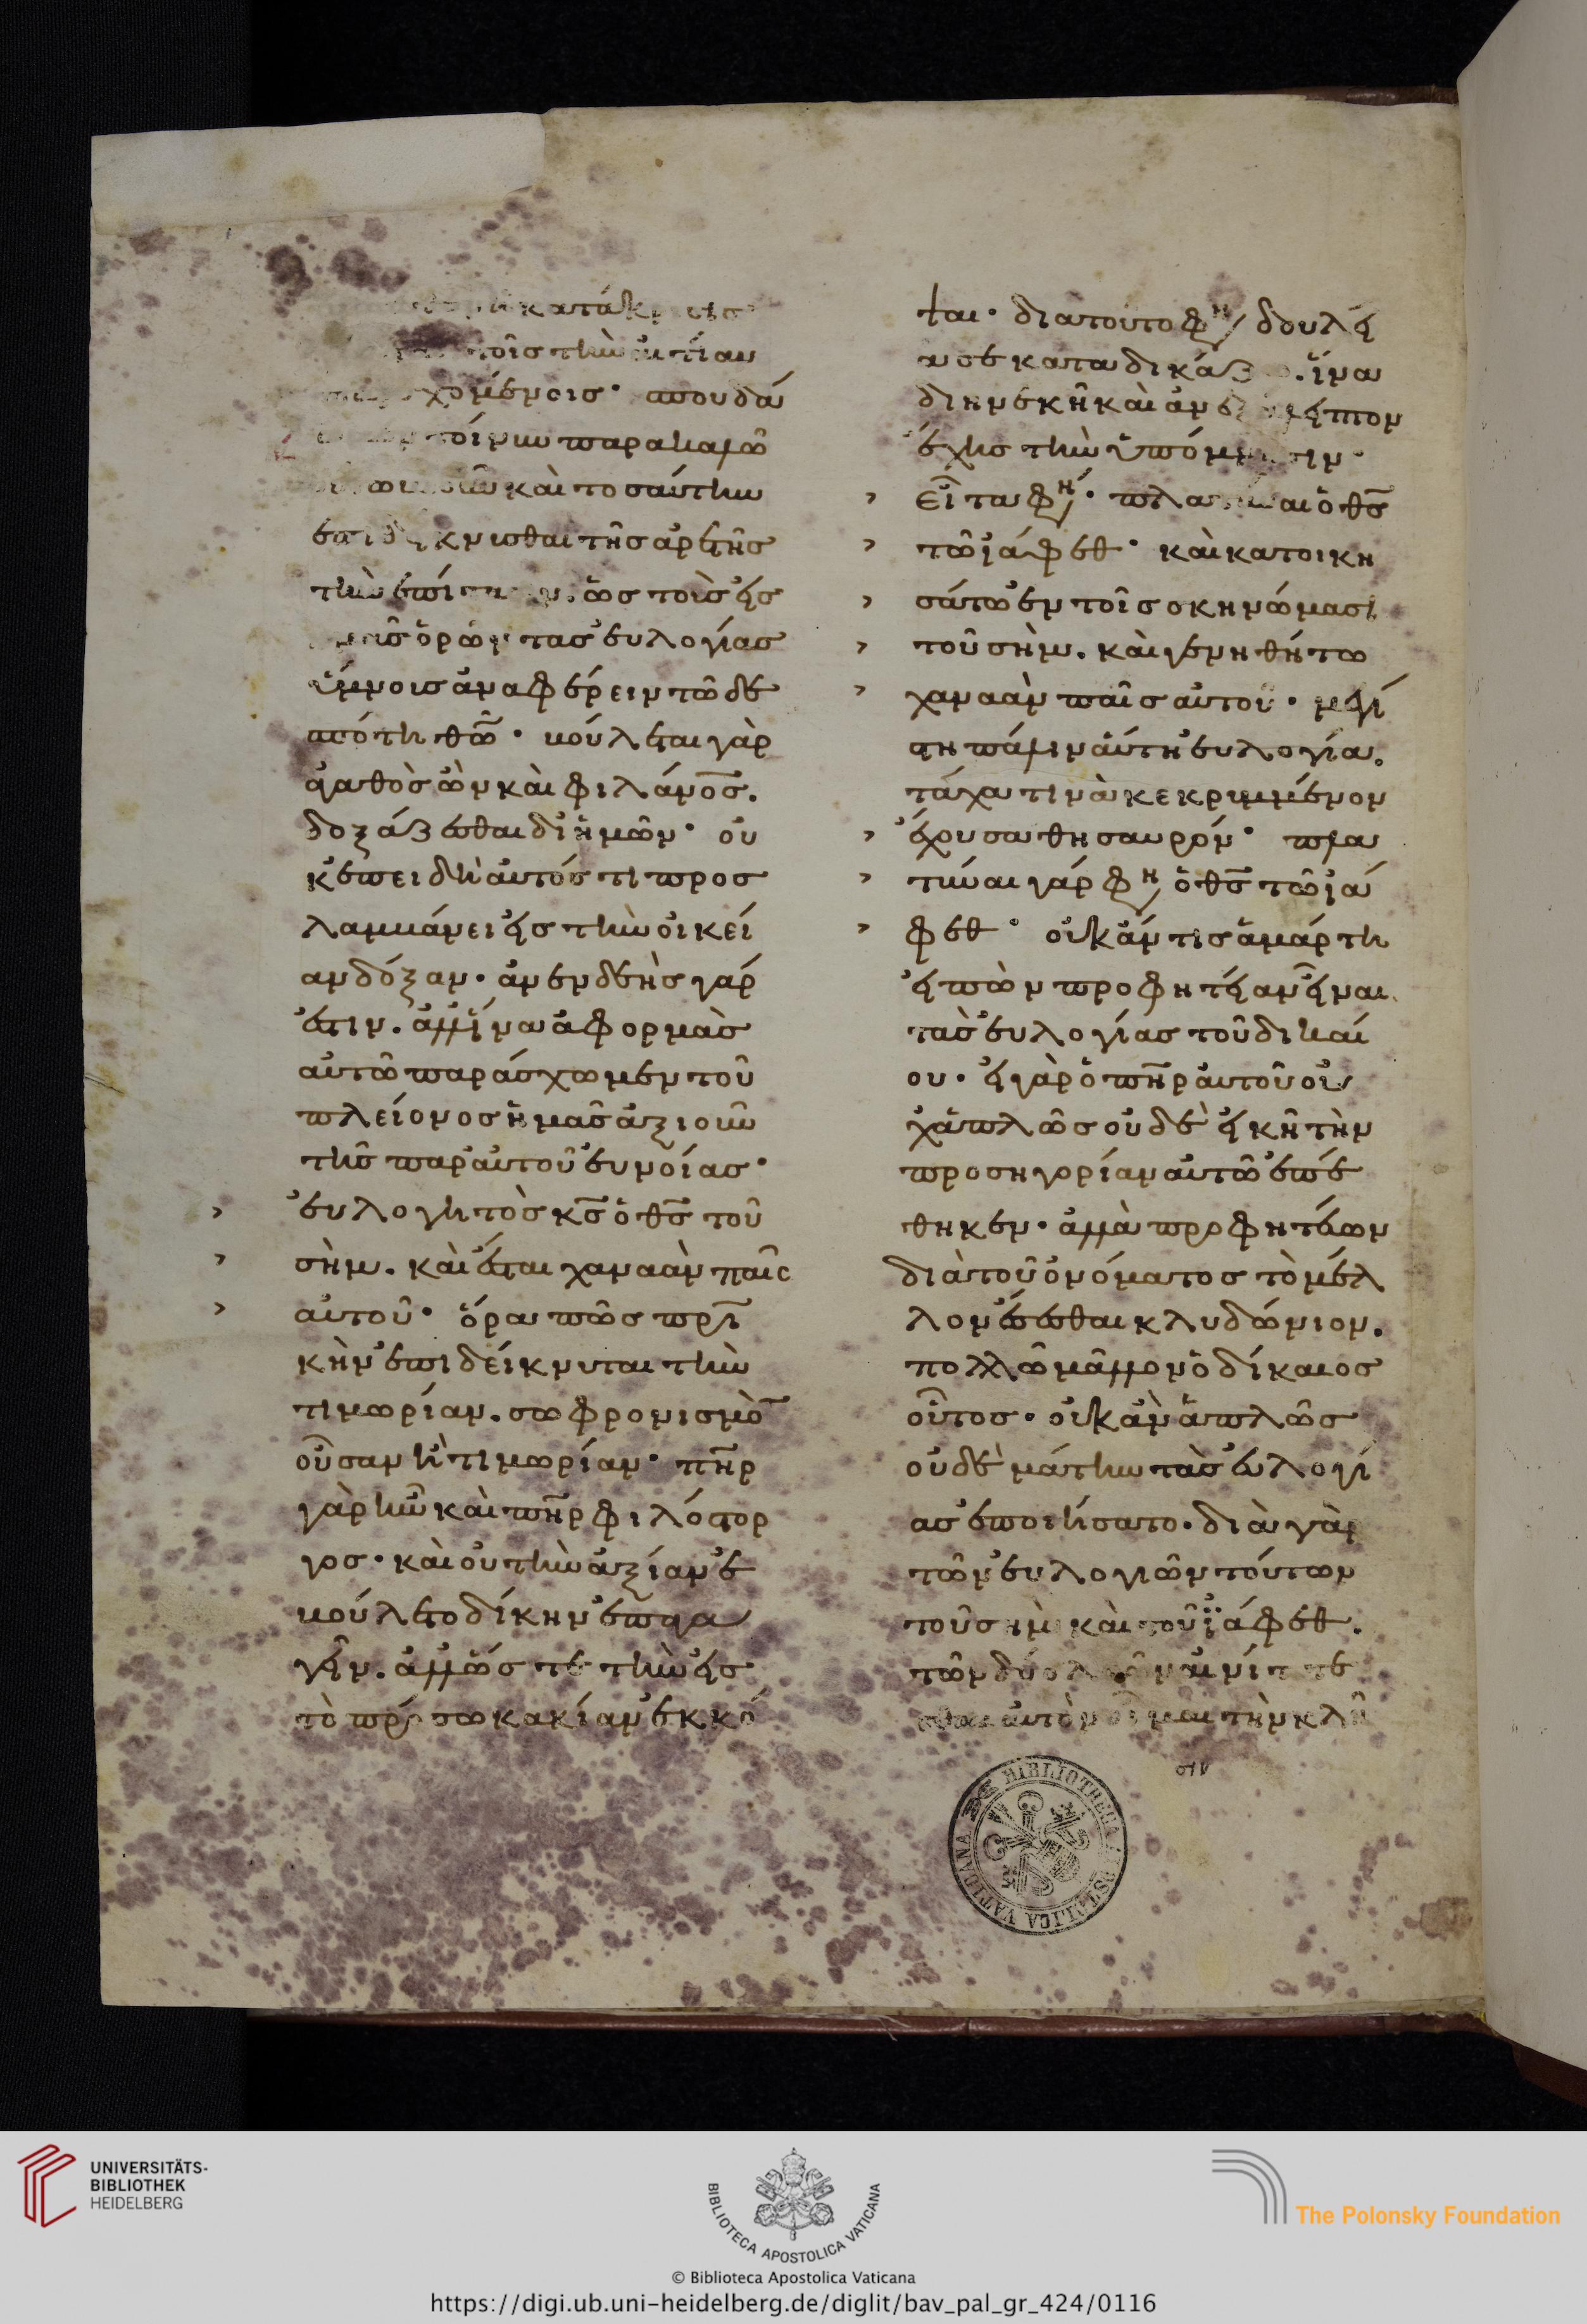 κατάκρισισ
τοῖσ τὴν αἰτίαν
χομένοισ· σπουδά
τοίνυν παρακαλῶ
καὶ τοσαύτην
ἐπιδείκνυσθαι τῆσ ἀρετῆσ
τὴν ὡσ τοὺσ εἰσ
ἡμᾶσ ὁρῶντασ εὐλογίασ
ὕμνοισ ἀναφέρειν τῶ δε
σπότη θῶ· βούλεται γὰρ
ἀγαθὸσ ὢν καὶ φιλάνοσ.
δοξάζεσθαι δι' ἡμῶν· οὐ
κ ἐπειδὴ αὐτόσ τι προσ
λαμβάνει εἰσ τὴν οἰκεί
αν δόξαν· ἀνενδεὴσ γάρ
ἐστιν. ἀλλ' ἵνα ἀφορμὰσ
αὐτῶ παράσχωμεν τοῦ
πλείονοσ ἡμᾶσ ἀξιοῦν
τῆσ παρ' αὐτοῦ εὐνοίασ·
εὐλογητὸσ κσ ὁ θσ τοῦ
σὴμ. καὶ ἔσται χαναὰν παῖσ
αὐτοῦ· ὅρα πῶσ πρι
κὴν ἐπιδείκνυται τὴν
τιμωρίαν. σωφρονισμὸ
οὖσαν ἢ τιμωρίαν· πηρ
γὰρ ἦν καὶ πηρ φιλόστορ
γοσ· καὶ οὐ τὴν ἀξίαν ἐ
βούλετο δίκην ἐπαγα
γεῖν. ἀλλ' ὥστε τὴν εἰσ
τὸ πρόσω κακίαν ἐκκό
ψαι· διατοῦτο φη δουλεί
α σε καταδικάζω. ἵνα
διηνεκῆ καὶ ἀνεξάλειπτον
ἔχησ τὴν ὑπόμνησιν·
εἶτα φη· πλατύναι ὁ θσ
τῶ ἰάφεθ· καὶ κατοικη
σάτω ἐν τοῖσ σκηνώμασι
τοῦ σὴμ. καὶ γενηθήτω
χαναὰν παῖσ αὐτοῦ· μεγί
στη πάλιν αὕτη εὐλογία.
τάχα τινὰ κεκρυμμένον
ἔχουσα θησαυρόν· πλα
τύναι γάρ φη ὁ θσ τῶ ἰά
φεθ· οὐκ ἄν τισ ἁμάρτη
εἰπὼν προφητείαν εἶναι
τὰσ εὐλογίασ τοῦ δικαί
ου· εἰ γὰρ ὁ πηρ αὐτοῦ οὐ
χ ἁπλῶσ οὐδὲ εἰκῆ τὴν
προσηγορίαν αὐτῶ ἐπέ
θηκεν· ἀλλὰ προφητεύων
διὰ τοῦ ὀνόματοσ τὸ μέλ
λον ἔσεσθαι κλυδώνιον.
πολλῶ μᾶλλον ὁ δίκαιοσ
οὗτοσ· οὐκ ἂν ἁπλῶσ
οὐδὲ μάτην τὰσ εὐλογί
ασ ἐποιήσατο· διὰ γὰρ
τῶν εὐλογιῶν τούτων
τοῦ σὴμ καὶ τοῦ ϊάφεθ.
τῶν δύο λαῶν αἰνίττε
σθαι αὐτὸν οἶμαι τὴν κλῆ
σιν
BIBLIOTHECA APOSTOLICA VATICANA
UNIVERSITÄTS-
BIBLIOTHEK
HEIDELBERG
BIBLIOTECA APOSTOLICA VATICANA
The Polonsky Foundation
© Biblioteca Apostolica Vaticana
https://digi.ub.uni-heidelberg.de/diglit/bav_pal_gr_424/0116